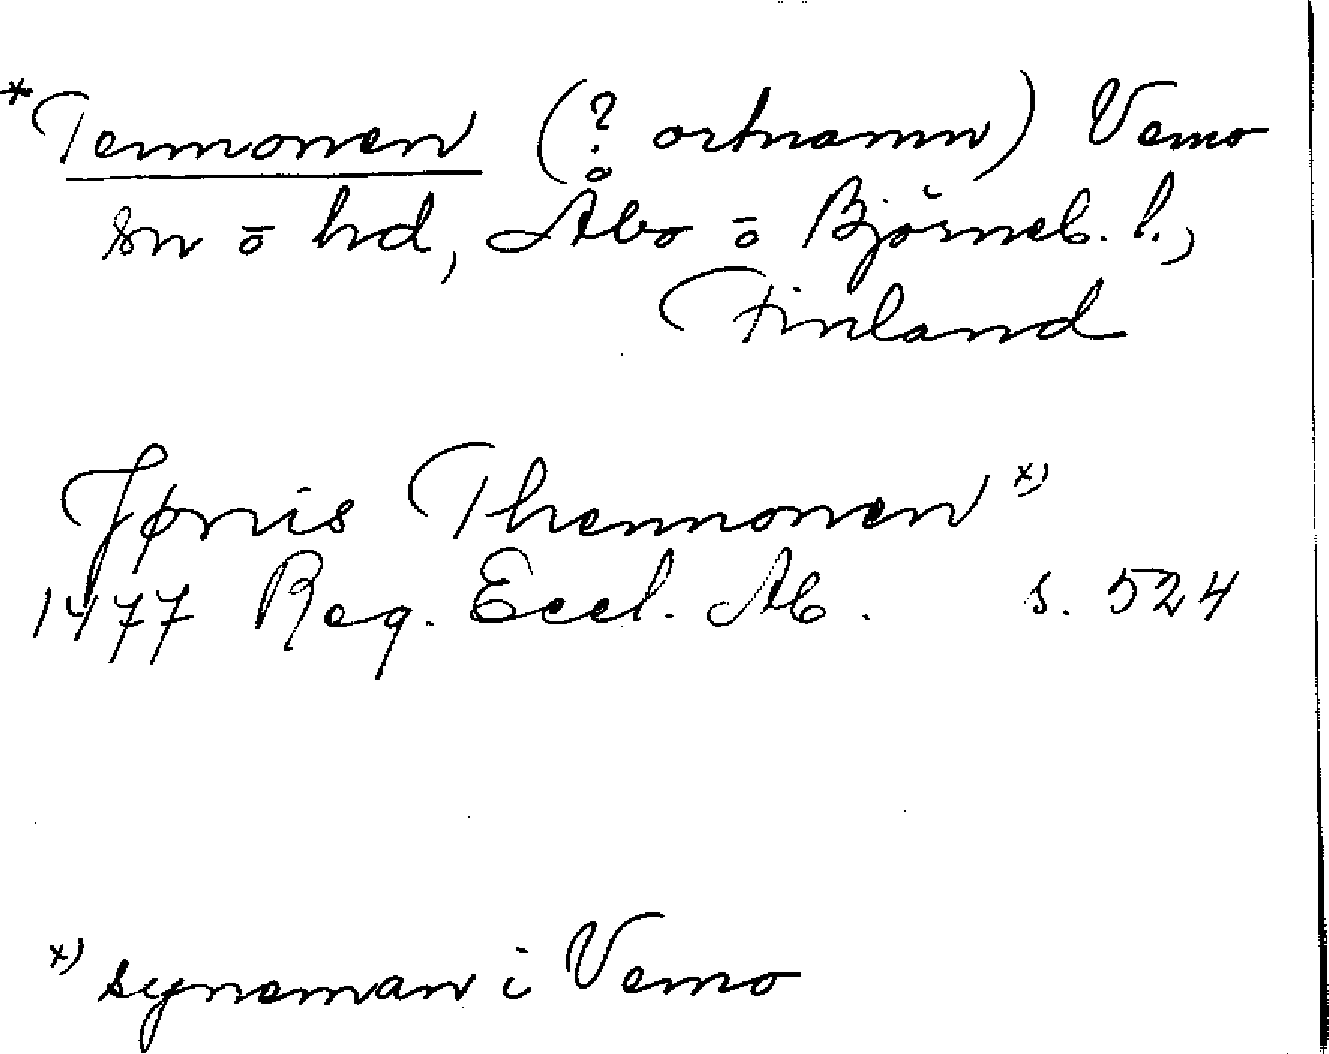 *Tennonen (? ortnamn) Vemo
sn o hd, Åbo o Björneb. l.,
Finland
Jönis Thennonen x)
1477 Reg. Eccl. Ab. s. 524
x) syneman i Vemo